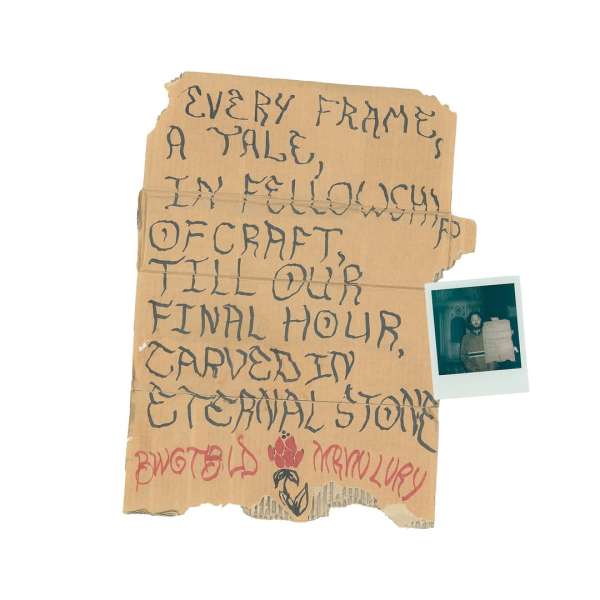 EVERY FRAME,
A TALE,
IN FELLOWSHIP
OF CRAFT,
TILL OUR
FINAL HOUR,
CARVED IN
ETERNAL STONE
BWGTBLD MRVNLVRY